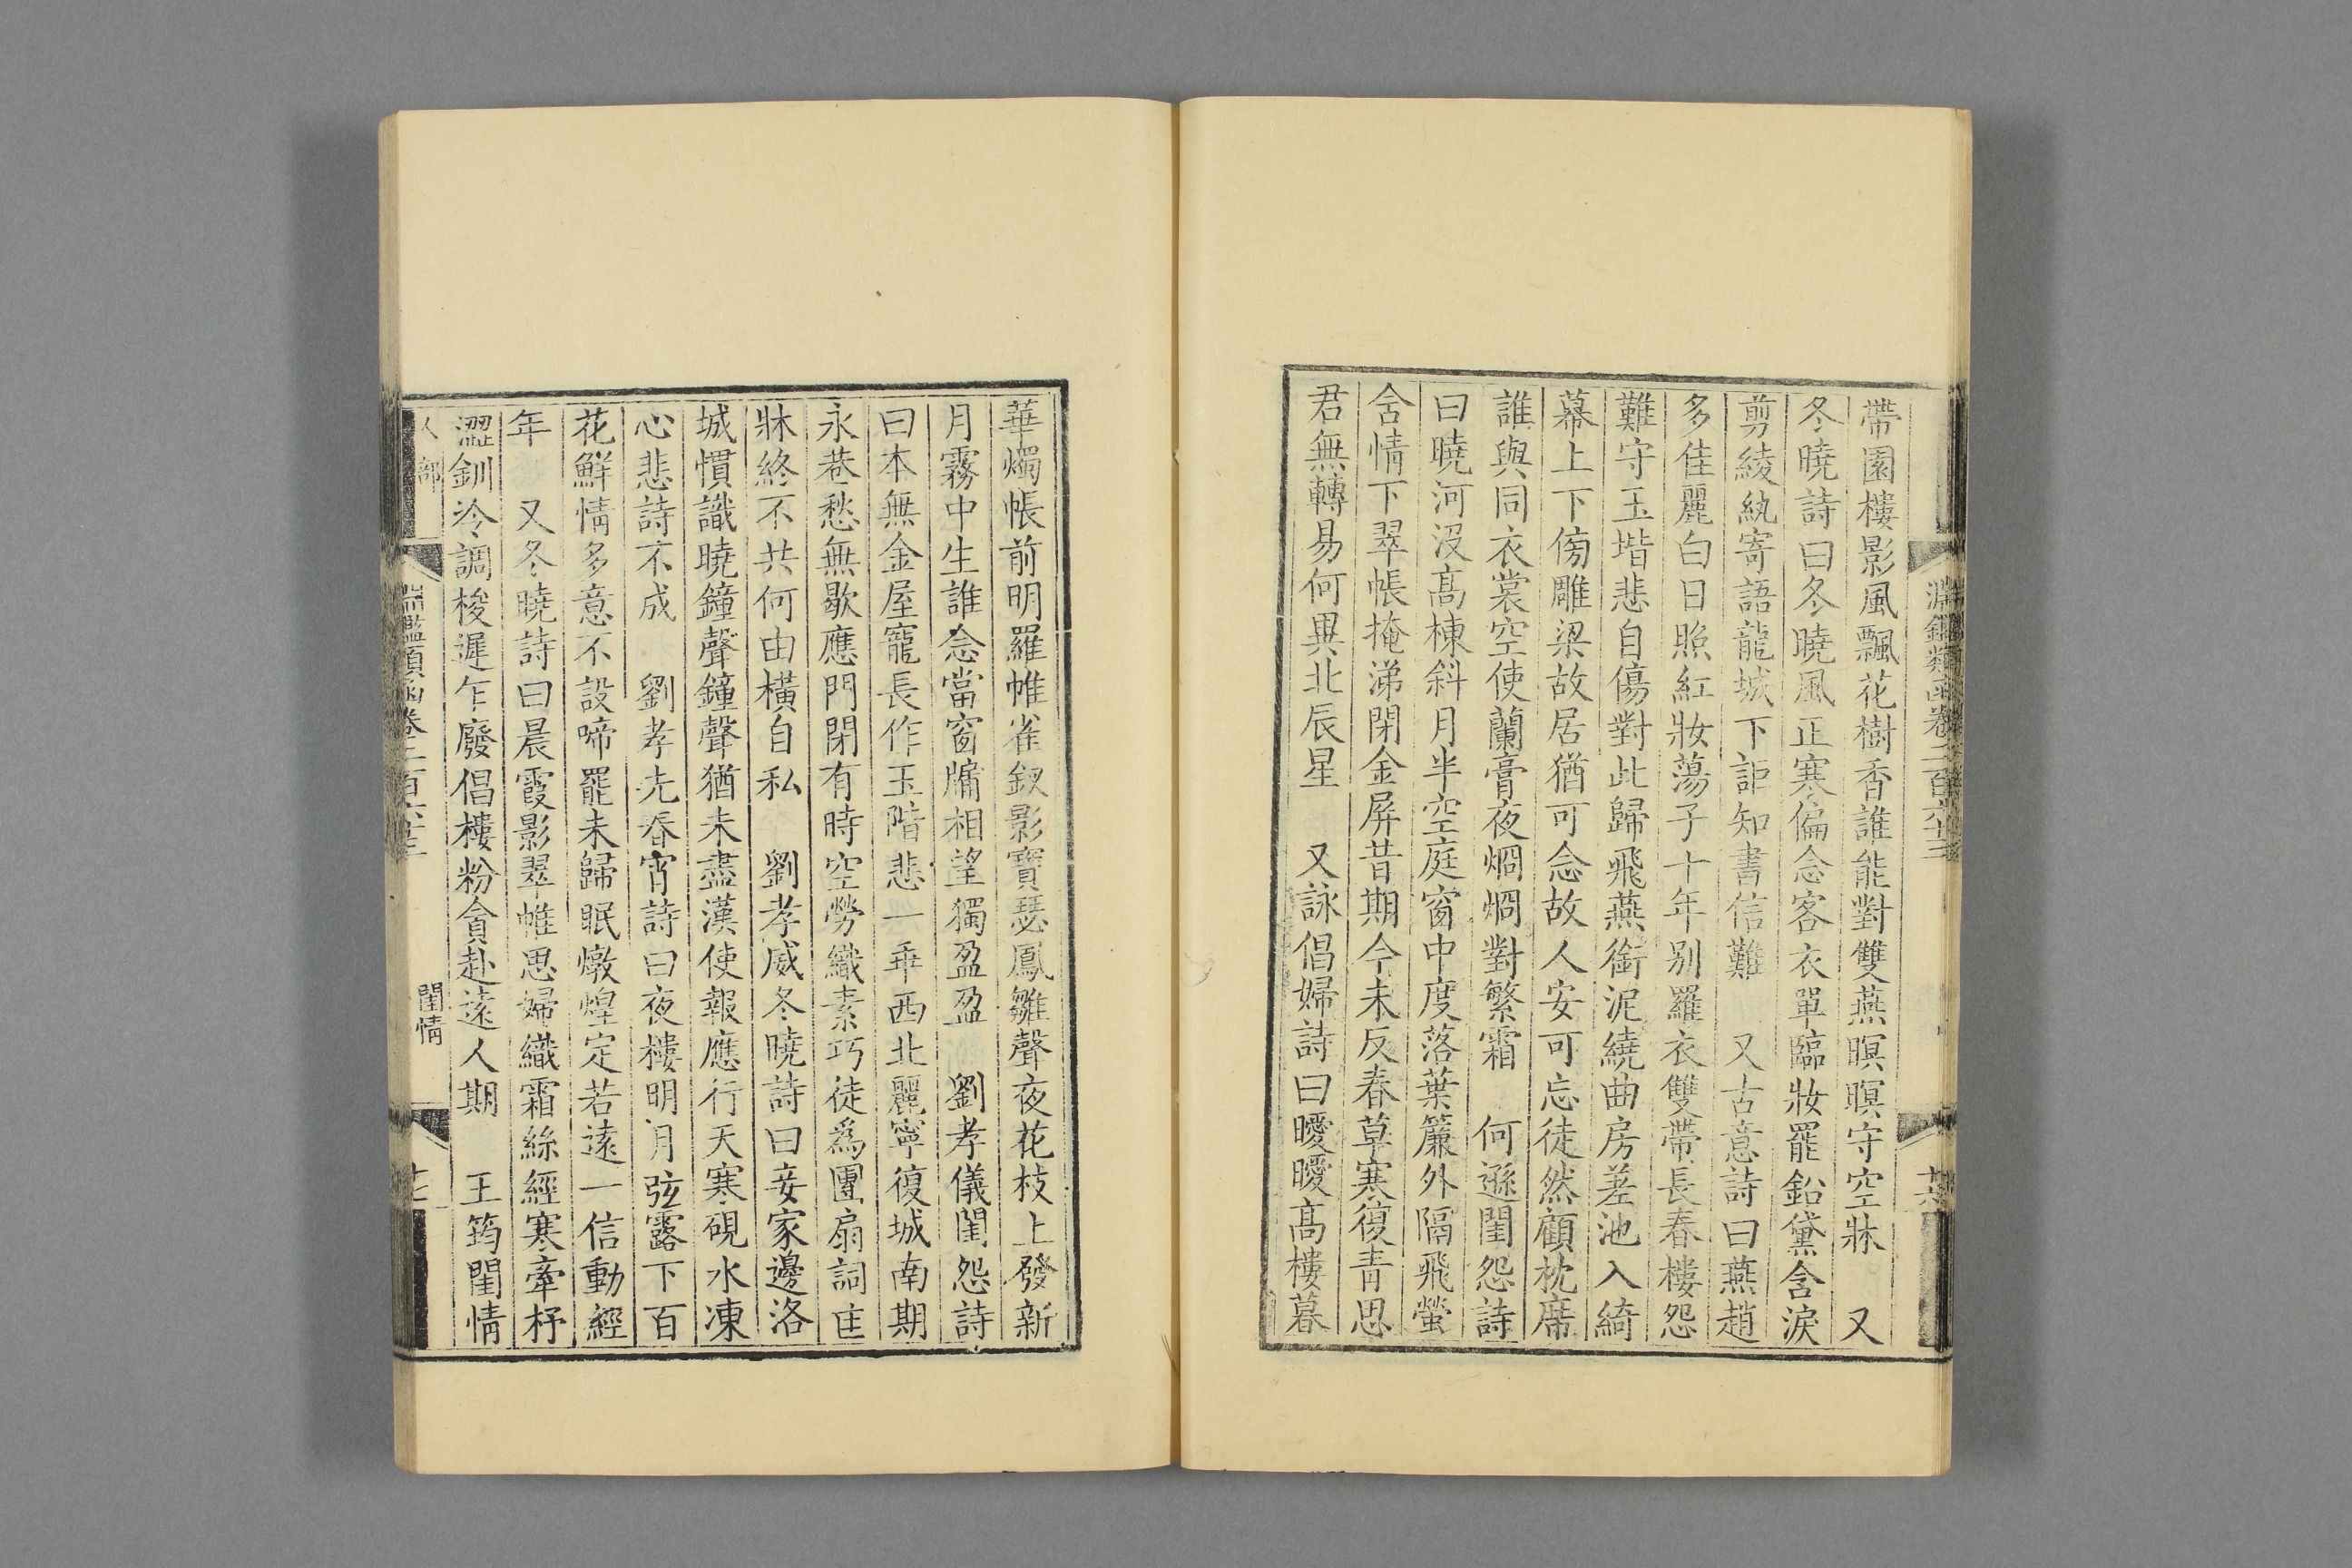 淵鑑類函卷二百六十三
十六
帶園樓影風飄花樹香誰能對雙燕暝暝守空牀　又
冬曉詩曰冬曉風正寒偏念客衣單臨妝罷鉛黛含淚
剪綾紈寄語龍城下詎知書信難　又古意詩曰燕趙
多佳麗白日照紅妝蕩子十年別羅衣雙帶長春樓怨
難守玉堦悲自傷對此歸飛燕銜泥繞曲房差池入綺
幕上下傍雕梁故居猶可念故人安可忘徒然顧枕席
誰與同衣裳空使蘭膏夜烱烱對繁霜　何遜閨怨詩
曰曉河沒髙棟斜月半空庭窗中度落葉簾外隔飛螢
含情下翠帳掩涕閉金屏昔期今未反春草寒復青思
君無轉易何異北辰星　又詠倡婦詩曰曖曖髙樓暮
華燭帳前明羅帷雀釵影寶瑟鳳雛聲夜花枝上發新
月霧中生誰念當窗牖相望獨盈盈　劉孝儀閨怨詩
曰本無金屋寵長作玉階悲一乖西北麗寧復城南期
永巷愁無歇應門閉有時空勞織素巧徒爲團扇詞匡
牀終不共何由橫自私　劉孝威冬曉詩曰妾家邊洛
城慣識曉鐘聲鐘聲猶未盡漢使報應行天寒硯水凍
心悲詩不成　劉孝先春宵詩曰夜樓明月弦露下百
花鮮情多意不設啼罷未歸眠燉煌定若遠一信動經
年　又冬曉詩曰晨霞影翠帷思婦織霜絲經寒牽杼
澀釧冷調梭遲乍廢倡樓粉貪赴遠人期　王筠閨情
人部
淵鑑類函卷二百六十三
閨情
十七